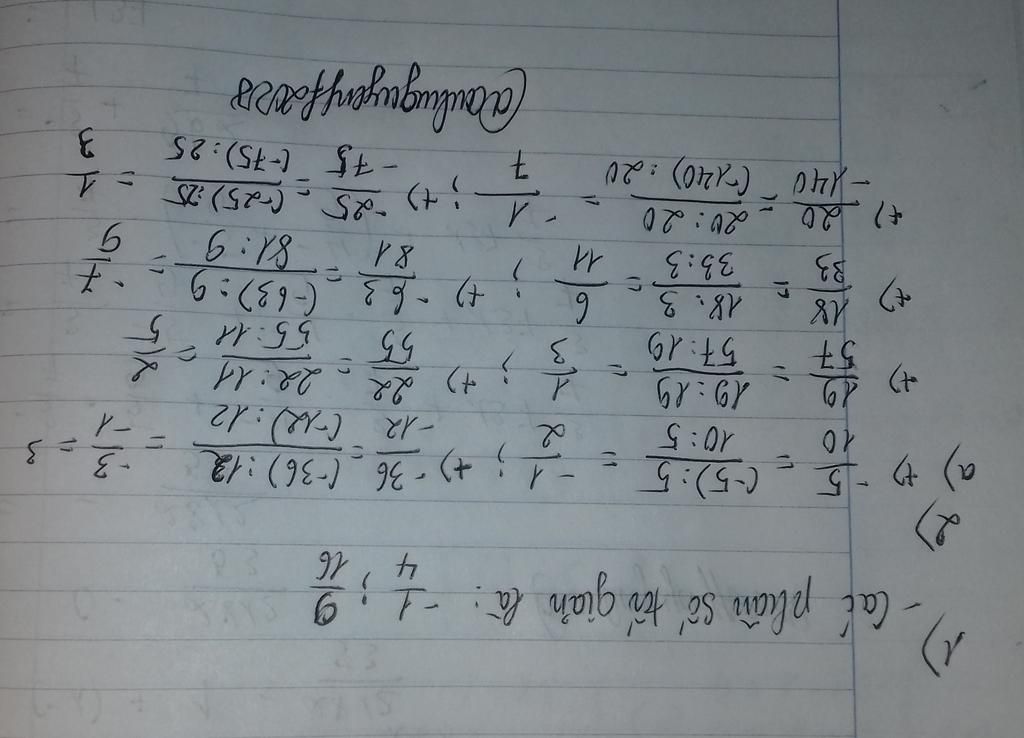 1)
- Các phân số tối giản là: -1/4 ; 9/16
2)
a) +) -5/10 = (-5):5/10:5 = -1/2 ; +) -36/-12 = (-36):12/(-12):12 = -3/-1 = 3
+) 19/57 = 19:19/57:19 = 1/3 ; +) 22/55 = 22:11/55:11 = 2/5
+) 18/33 = 18:3/33:3 = 6/11 ; +) -63/81 = (-63):9/81:9 = -7/9
+) 20/-140 = 20:20/(-140):20 = -1/7 ; +) -25/-75 = (-25):25/(-75):25 = 1/3